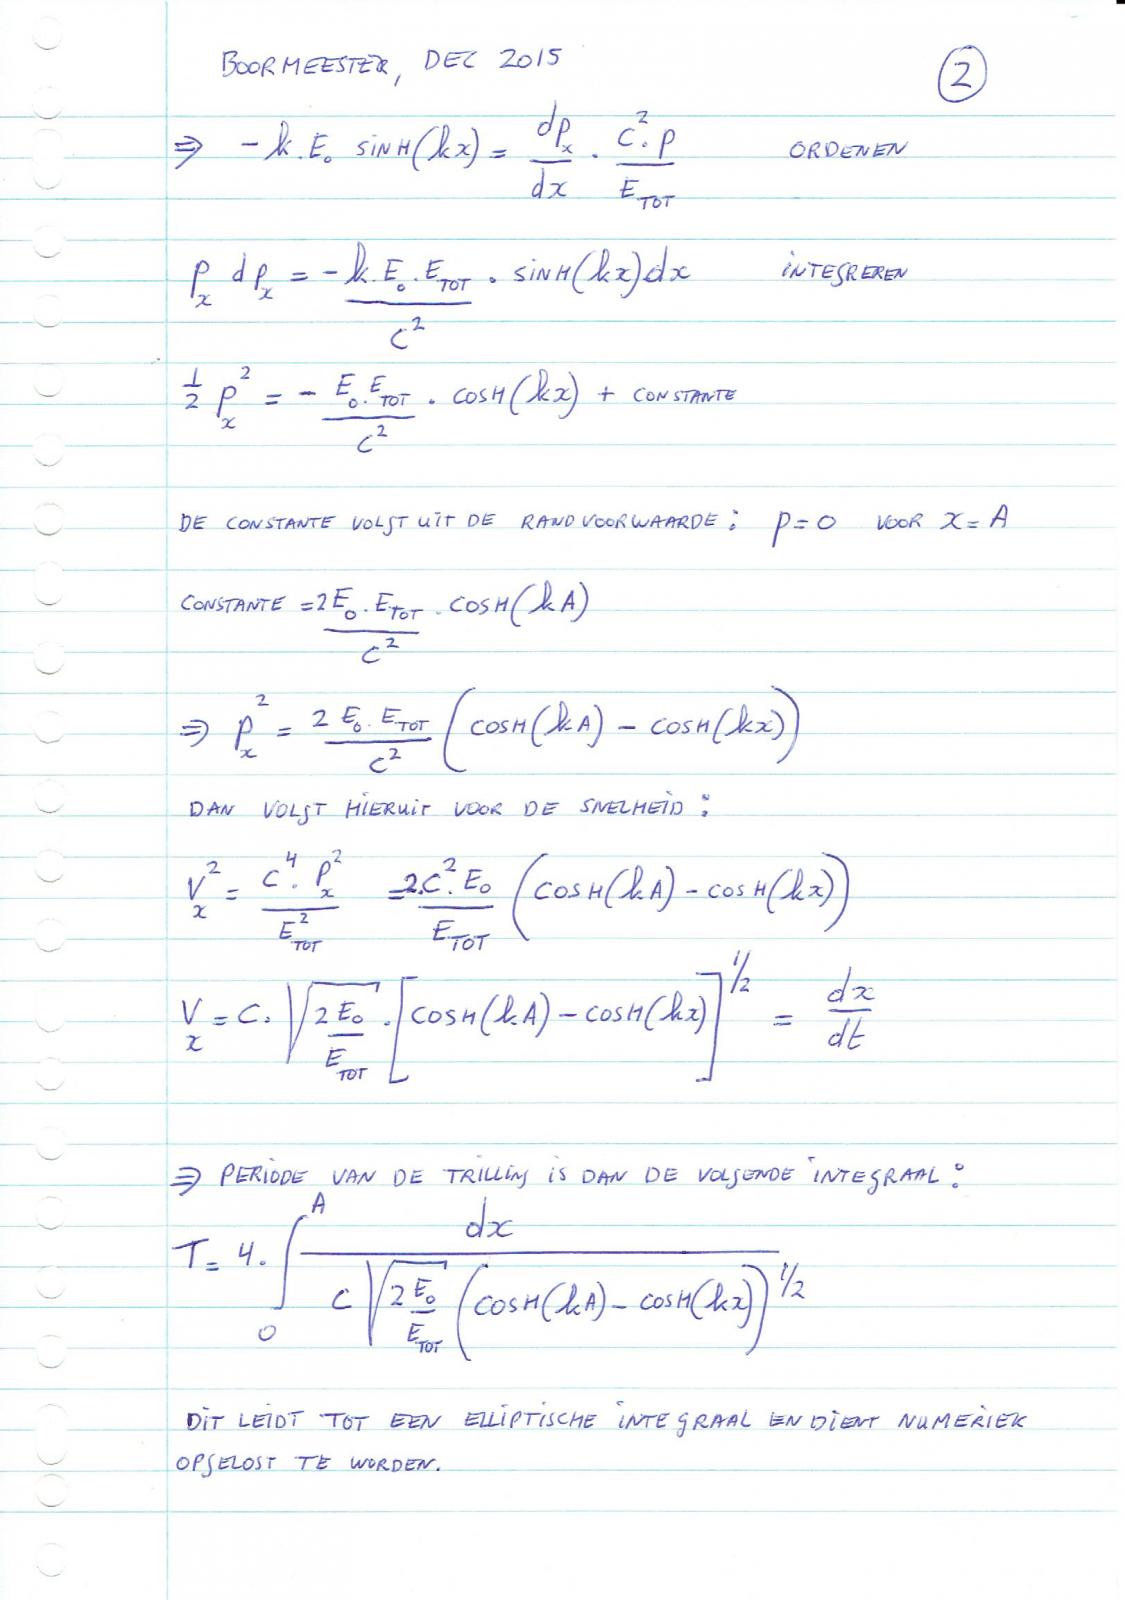 BOORMEESTER, DEC 2015
2
⇒ -k.E₀ SINH(kx) = dpₓ/dx . c².p/E_TOT ORDENEN
pₓ dpₓ = -k.E₀.E_TOT/c² . SINH(kx)dx INTEGREREN
1/2 pₓ² = - E₀.E_TOT/c² . COSH(kx) + CONSTANTE
DE CONSTANTE VOLGT UIT DE RANDVOORWAARDE: p=0 VOOR x=A
CONSTANTE = 2E₀.E_TOT/c² . COSH(kA)
⇒ pₓ² = 2 E₀.E_TOT/c² (COSH(kA) - COSH(kx))
DAN VOLGT HIERUIT VOOR DE SNELHEID:
Vₓ² = c⁴.pₓ²/E²_TOT = 2.c².E₀/E_TOT (COSH(kA) - COSH(kx))
Vₓ = c. √(2E₀/E_TOT) . [COSH(kA) - COSH(kx)]^1/2 = dx/dt
⇒ PERIODE VAN DE TRILLING IS DAN DE VOLGENDE INTEGRAAL:
T = 4. ∫₀^A dx / c √(2E₀/E_TOT) (COSH(kA) - COSH(kx))^1/2
DIT LEIDT TOT EEN ELLIPTISCHE INTEGRAAL EN DIENT NUMERIEK
OPGELOST TE WORDEN.